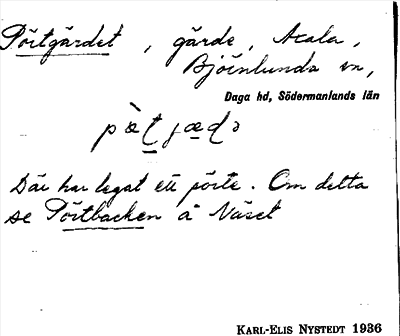 Pörtgärdet, gärde, Acala,
Björnlunda sn,
Daga hd, Södermanlands län
Där har legat ett pörte. Om detta
se Pörtbacken å Näset
KARL-ELIS NYSTEDT 1936